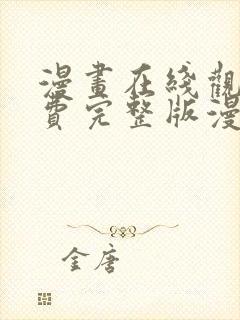 漫畫在綫觀
費完整版漫
金唐